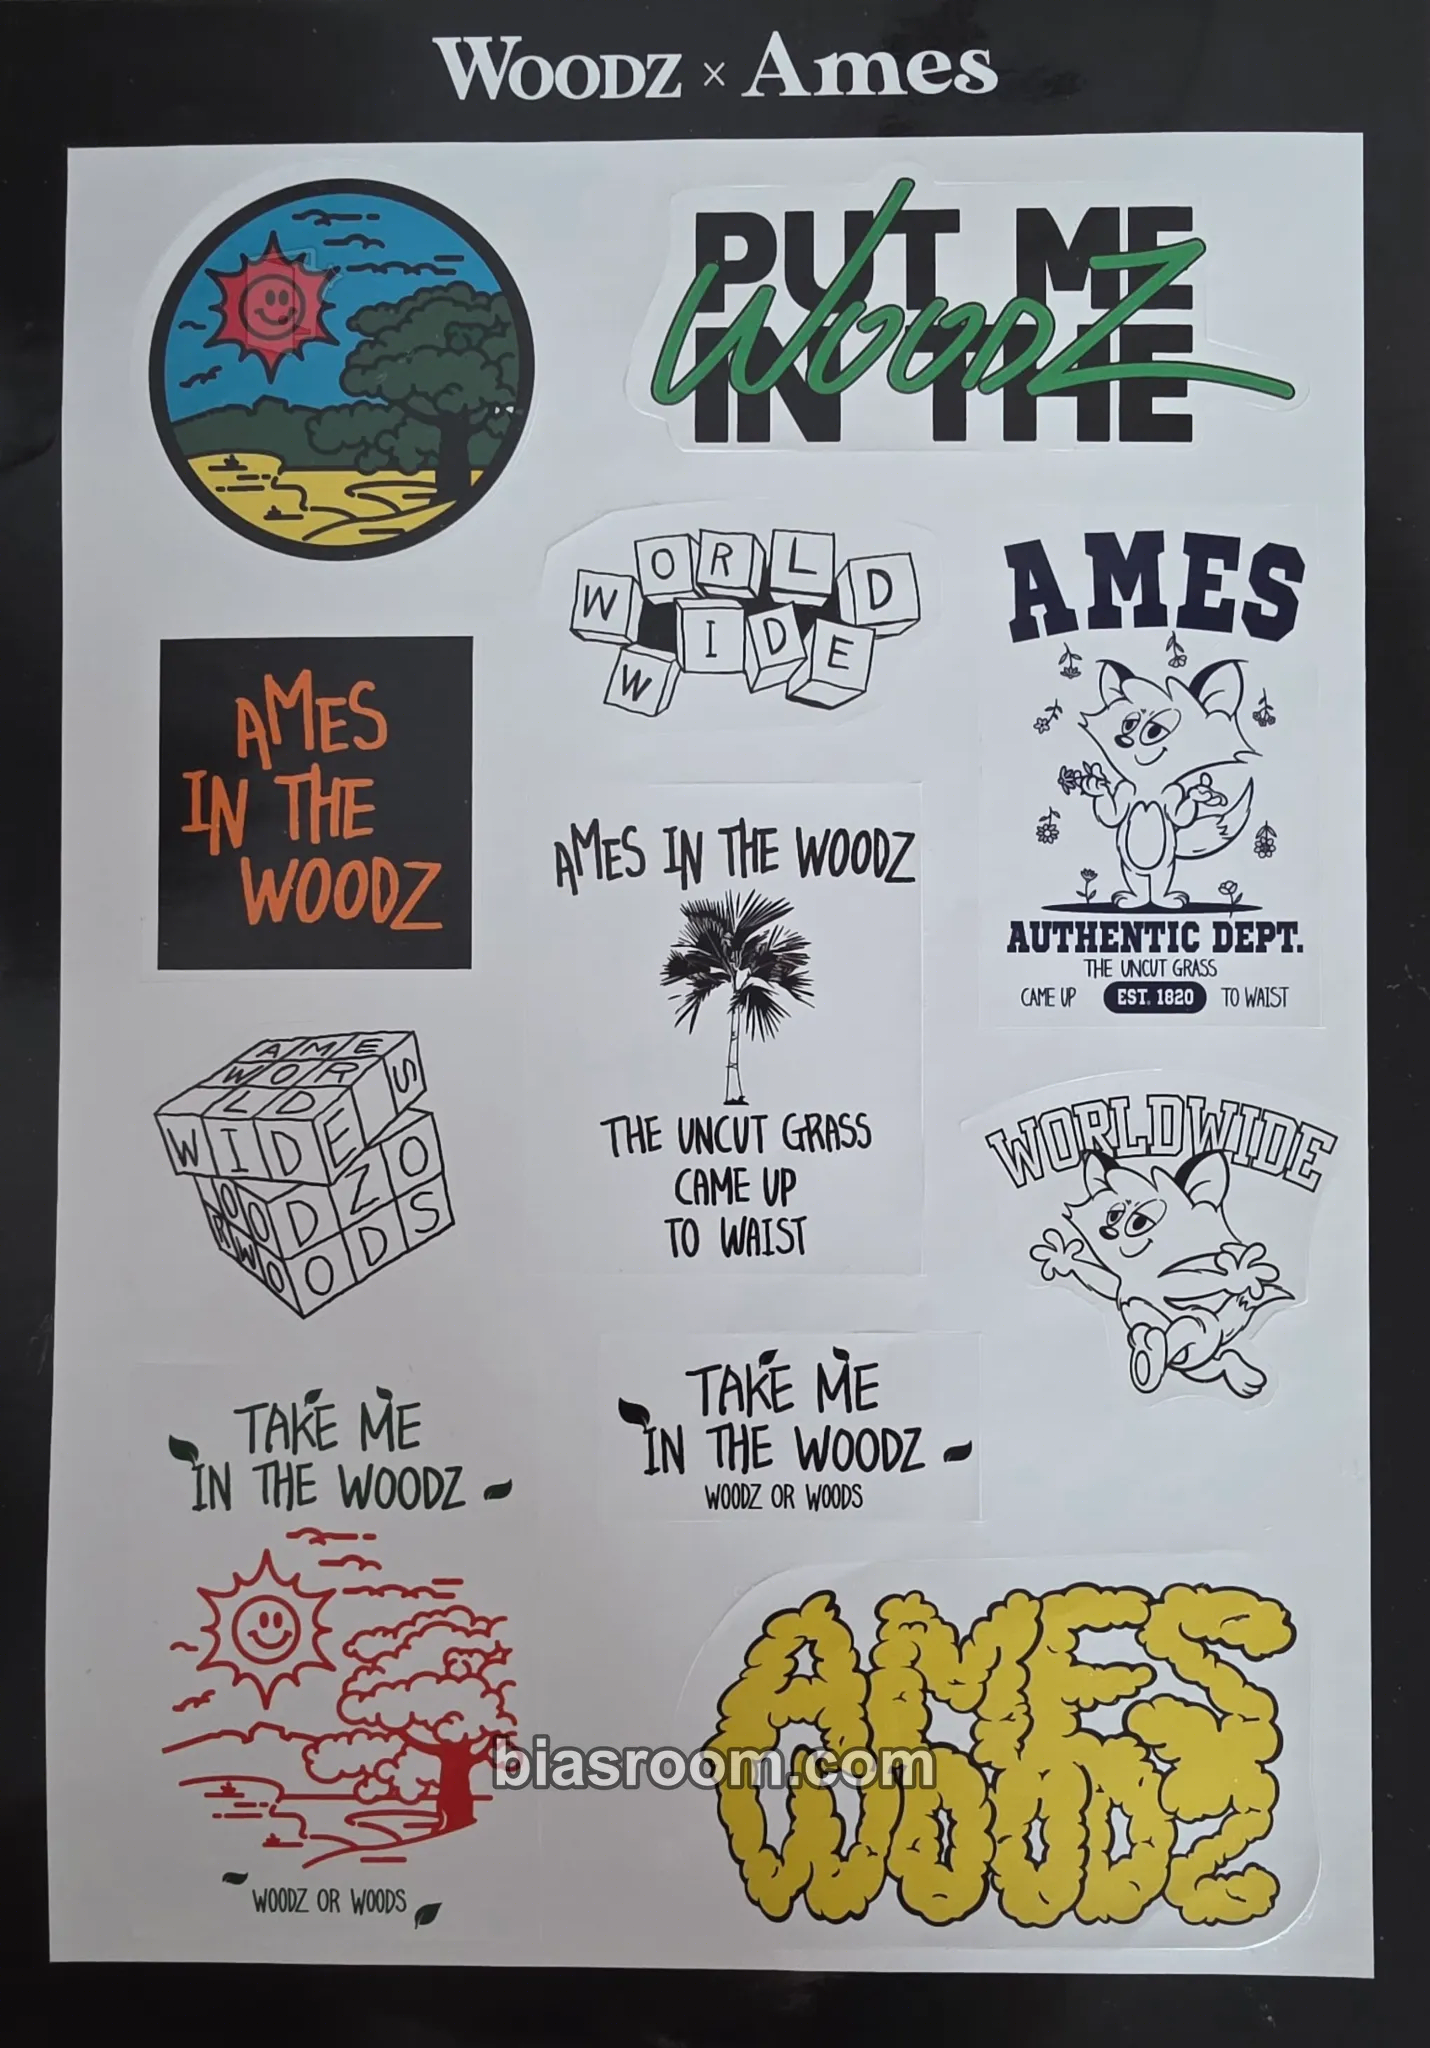 WOODZ × Ames
PUT ME
WOODZ
IN THE
WORLD
WIDE
AMES
AUTHENTIC DEPT.
THE UNCUT GRASS
CAME UP EST. 1820 TO WAIST
AMES
IN THE
WOODZ
AMES IN THE WOODZ
THE UNCUT GRASS
CAME UP
TO WAIST
AMES
WOR
LD
WIDE
S
WORLDWIDE
TAKE ME
IN THE WOODZ
WOODZ OR WOODS
TAKE ME
IN THE WOODZ
WOODZ OR WOODS
AMES
WOODZ
biasroom.com